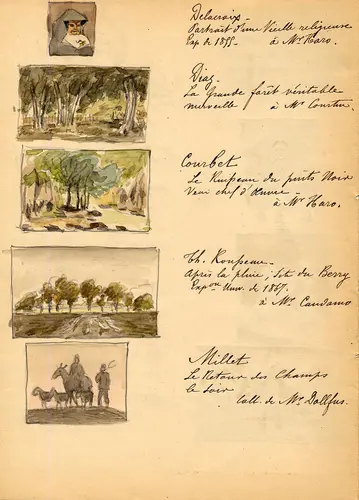 Delacroix -
Portrait d'une Vieille religieuse
Exp. de 1855 - à Mr. Haro.
Diaz -
La Grande forêt, véritable
merveille à Mr.
Courbet
Le Ruisseau du puits Noir
Vrai chef d'œuvre -
à Mr. Haro.
Th. Rousseau -
Après la pluie, Sit. du Berry
Expon. Univ. de 1867.
à Mr. Candamo
Millet
Le Retour des Champs
le Soir
Coll. de Mr. Dollfus.